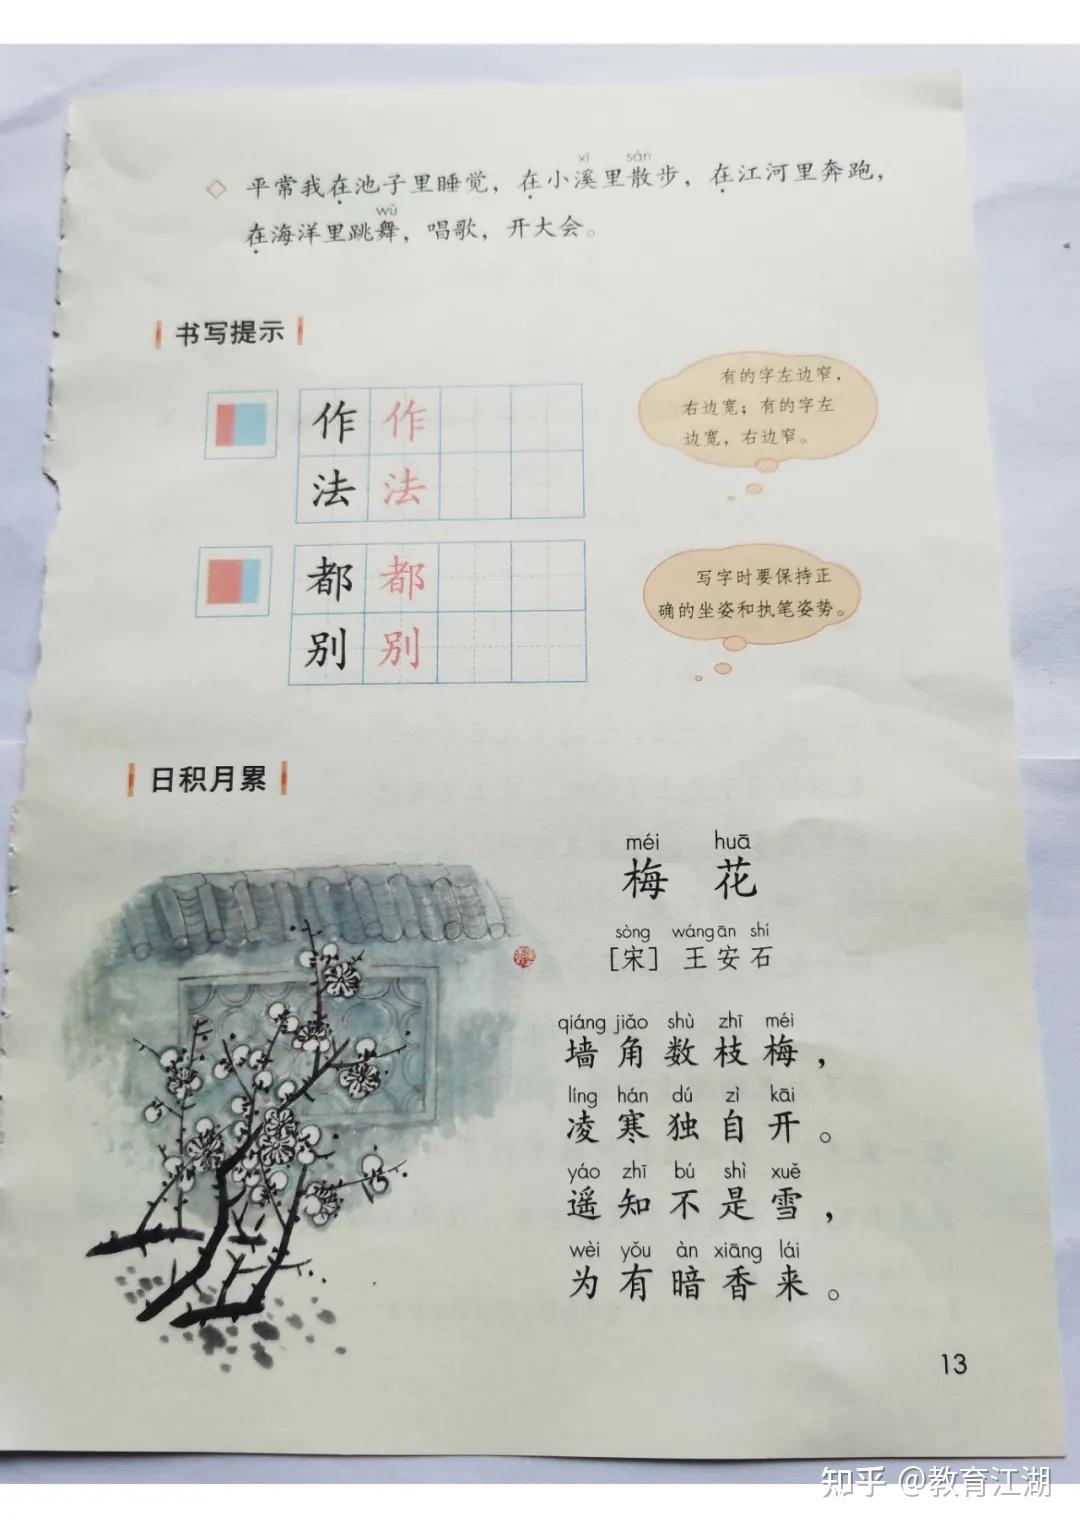 xī sàn
◇ 平常我在池子里睡觉，在小溪里散步，在江河里奔跑，
wǔ
在海洋里跳舞，唱歌，开大会。
书写提示
作 作
法 法
有的字左边窄，
右边宽；有的字左
边宽，右边窄。
都 都
别 别
写字时要保持正
确的坐姿和执笔姿势。
日积月累
méi huā
梅 花
sòng wáng ān shí
［宋］ 王安石
qiáng jiǎo shù zhī méi
墙角数枝梅，
líng hán dú zì kāi
凌寒独自开。
yáo zhī bú shì xuě
遥知不是雪，
wèi yǒu àn xiāng lái
为有暗香来。
13
知乎 @教育江湖